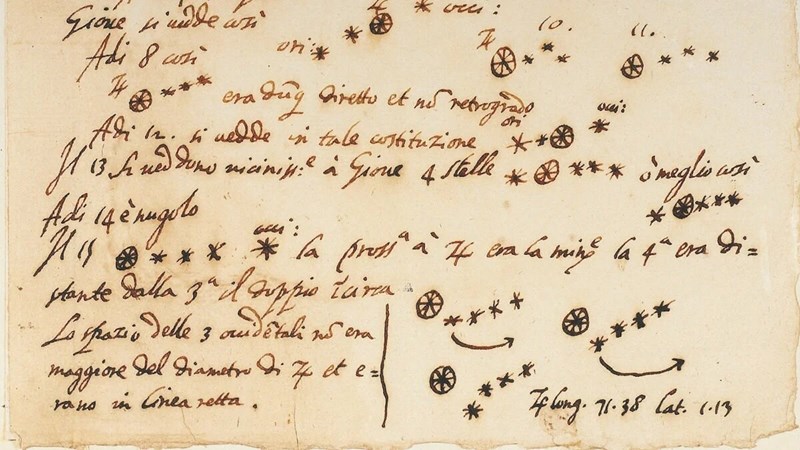 Gioue si uedde così ♃ occi:
Adi 8 così ori: ♃ 10. 11.
♃ era dūq diretto et nō retrogrado
Adi 12. si uedde in tale costituzione ori: occi:
Il 13 si ueddono vicinissᵉ à Gioue 4 stelle ò meglio così
Adi 14 è nugolo
Il 15 occi: la prossᵃ à ♃ era la minᵉ la 4ᵃ era di=
stante dalla 3ᵃ il doppio circa
Lo spazio delle 3 occidētali nō era
maggiore del diametro di ♃ et e=
rano in linea retta.
♃ long. 71.38 lat. 1.13